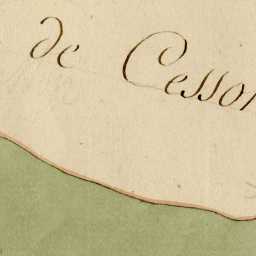 de Cesson